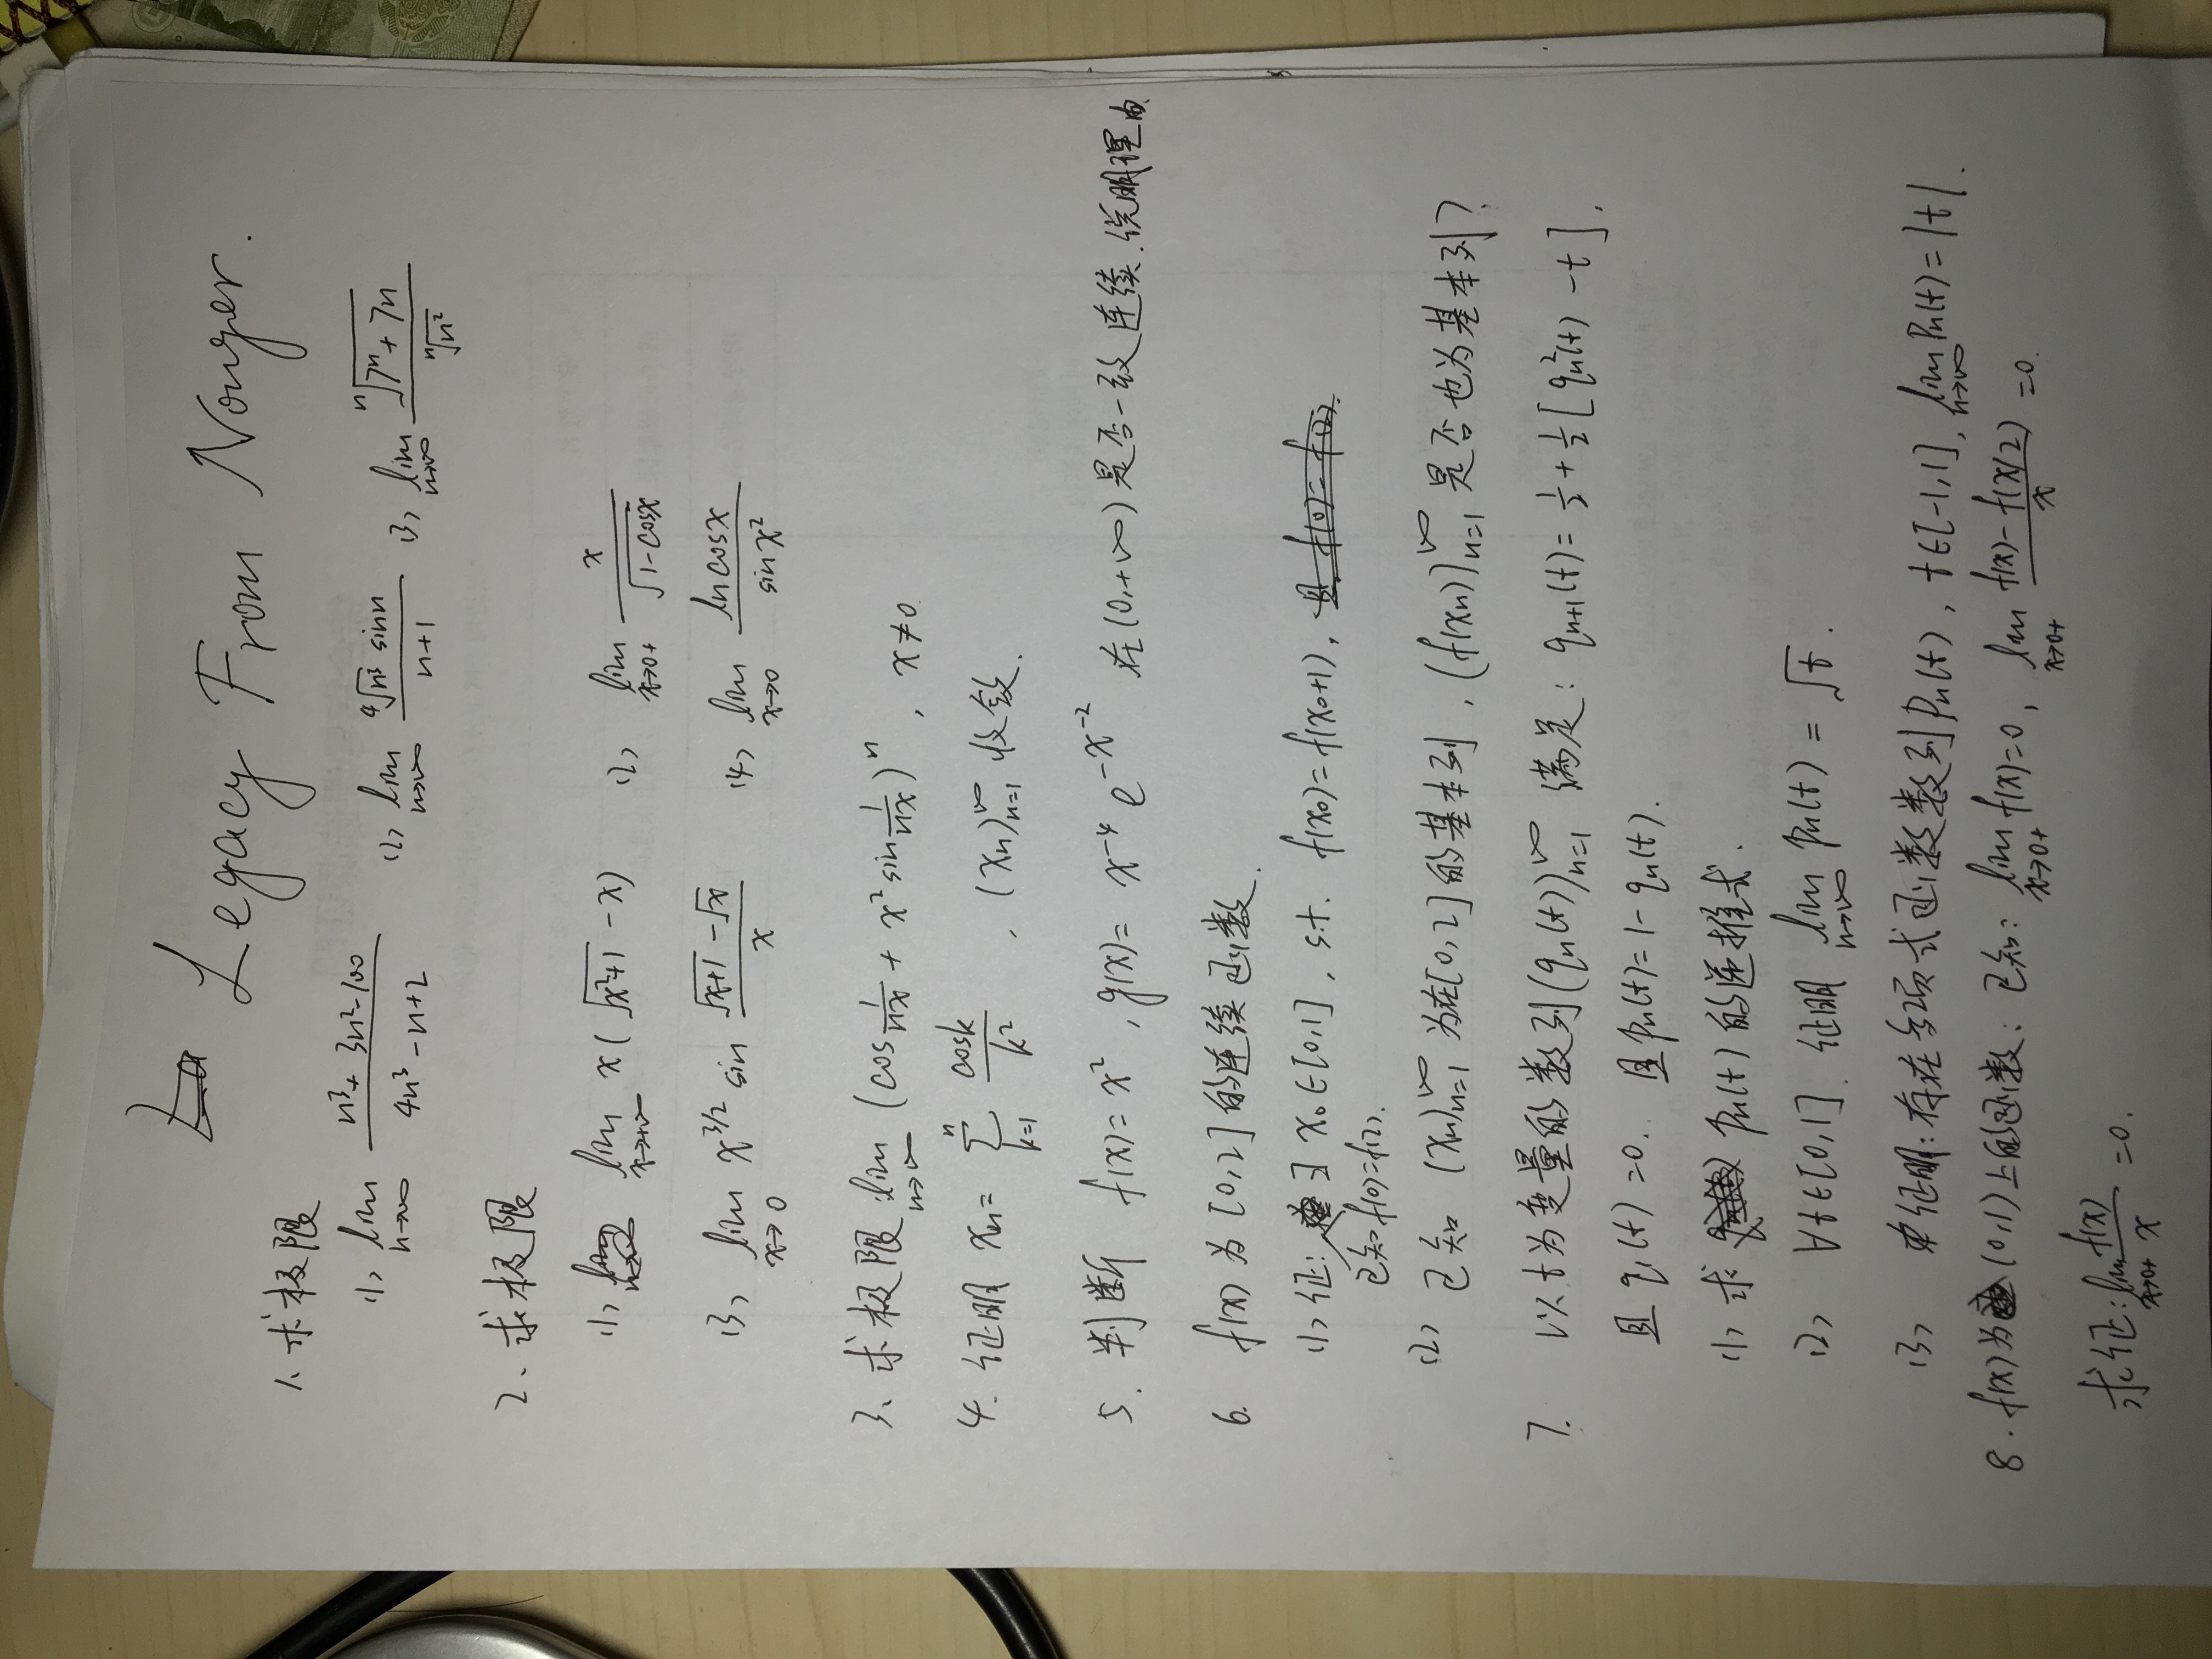 Legacy From Nonger.
1、求极限
(1) lim_{n→∞} (n³+3n²-100)/(4n³-n+2) (2) lim_{n→∞} (⁴√n³ sinn)/(n+1) (3) lim_{n→∞} ⁿ√(7ⁿ+7n)/ⁿ√n²
2、求极限
(1) lim_{x→+∞} x(√(x²+1)-x) (2) lim_{x→0+} x/√(1-cosx)
(3) lim_{x→0} x^{3/2} sin (√(x+1)-√x)/x (4) lim_{x→0} lncosx/sinx²
3、求极限 lim_{n→∞} (cos 1/(nx) + x² sin 1/(nx))ⁿ, x≠0.
4. 证明 xₙ= Σ_{k=1}^{n} cosk/k², (xₙ)_{n=1}^∞ 收敛.
5. 判断 f(x)=x², g(x)= x⁻⁴ e^{-x⁻²} 在(0,+∞)是否一致连续.说明理由
6. f(x)为[0,2]的连续函数.
(1) 证: ∃ x₀∈[0,1], s.t. f(x₀)=f(x₀+1),
已知f(0)=f(2).
(2) 已知 (xₙ)_{n=1}^∞ 为在[0,2]的基本列, (f(xₙ))_{n=1}^∞ 是否也为基本列?
7. 以t为变量的数列(qₙ(t))_{n=1}^∞ 满足: qₙ₊₁(t)= 1/2 + 1/2 [qₙ²(t) -t],
且 q₁(t)=0. 且 pₙ(t)=1-qₙ(t).
(1) 求 pₙ(t)的递推式.
(2) ∀t∈[0,1]. 证明 lim_{n→∞} pₙ(t) = √t.
(3) 证明:存在多项式函数数列Pₙ(t), t∈[-1,1], lim_{n→∞} Pₙ(t)=|t|.
8. f(x)为(0,1)上的函数: 已知: lim_{x→0+} f(x)=0, lim_{x→0+} (f(x)-f(x/2))/x =0.
求证: lim_{x→0+} f(x)/x =0.